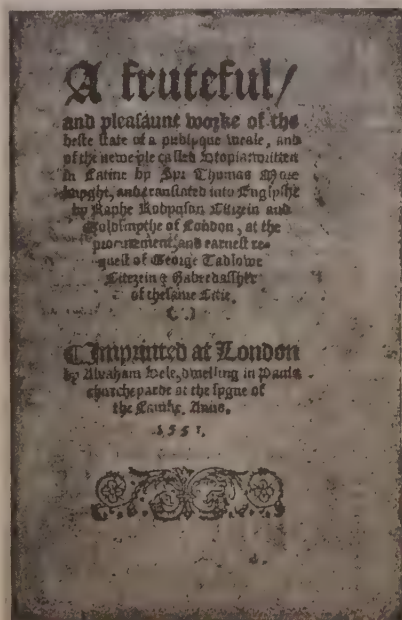 A fruteful/
and pleasaunt worke of the
beste state of a publyque weale, and
of the newe yle called Utopia: written
in Latine by Syr Thomas More
knyght, and translated into Englyshe
by Raphe Robynson Citizein and
Goldsmythe of London, at the
procurement, and earnest re-
quest of George Tadlowe
Citezein & Haberdassher
of thesame Citie.
Imprinted at London
by Abraham Vele, dwelling in Pauls
churcheyarde at the sygne of
the Lambe. Anno.
1551.